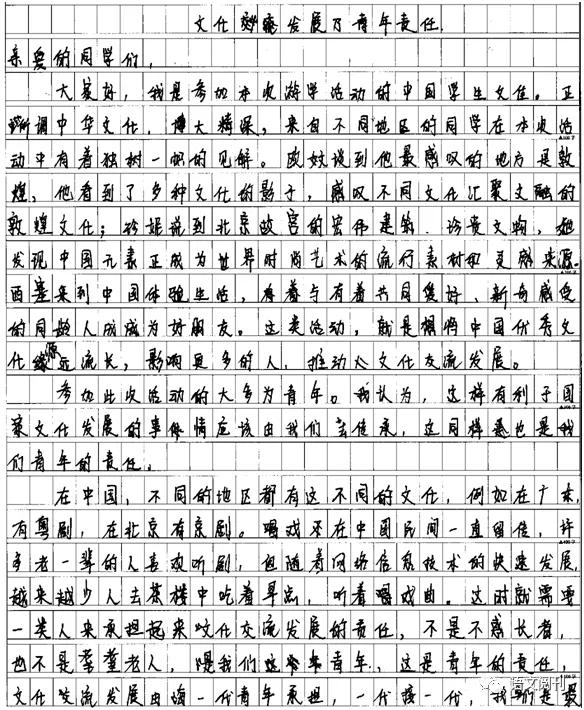 文化发展乃青年责任
亲爱的同学们，
大家好，我是参加本次游学活动的中国学生文佳。正
所谓中华文化，博大精深，来自不同地区的同学在本次活
动中有着独树一帜的见解。欧姣谈到他最感叹的地方是敦
煌，他看到了多种文化的影子，感叹不同文化汇聚交融的
敦煌文化；说到北京故宫的宏伟建筑、珍贵文物，她
发现中国元素正成为世界时尚艺术的流行素材和灵感来源。
西塞来到中国体验生活，与有着共同爱好、新奇感受
的同龄人成成为好朋友。这类活动，就是想将中国优秀文
化源远流长，影响更多的人，推动文化交流发展。
参加此次活动的大多为青年。我认为，这样有利于国
家文化发展的事情应该由我们去传承，这同样也是我
们青年的责任。
在中国，不同的地区都有这不同的文化，例如在广东，
有粤剧，在北京有京剧。唱戏在中国民间一直留传，许
多老一辈的人喜欢听剧，但随着网络信息技术的快速发展，
越来越少人去茶楼中吃着早点，听着戏曲。这时就需要
一类人来承担起来文化交流发展的责任，不是不感长者，
也不是老人，是我们青年，这是青年的责任，
文化交流发展由一代青年承担，一代接一代，我们是最
语文阅刊